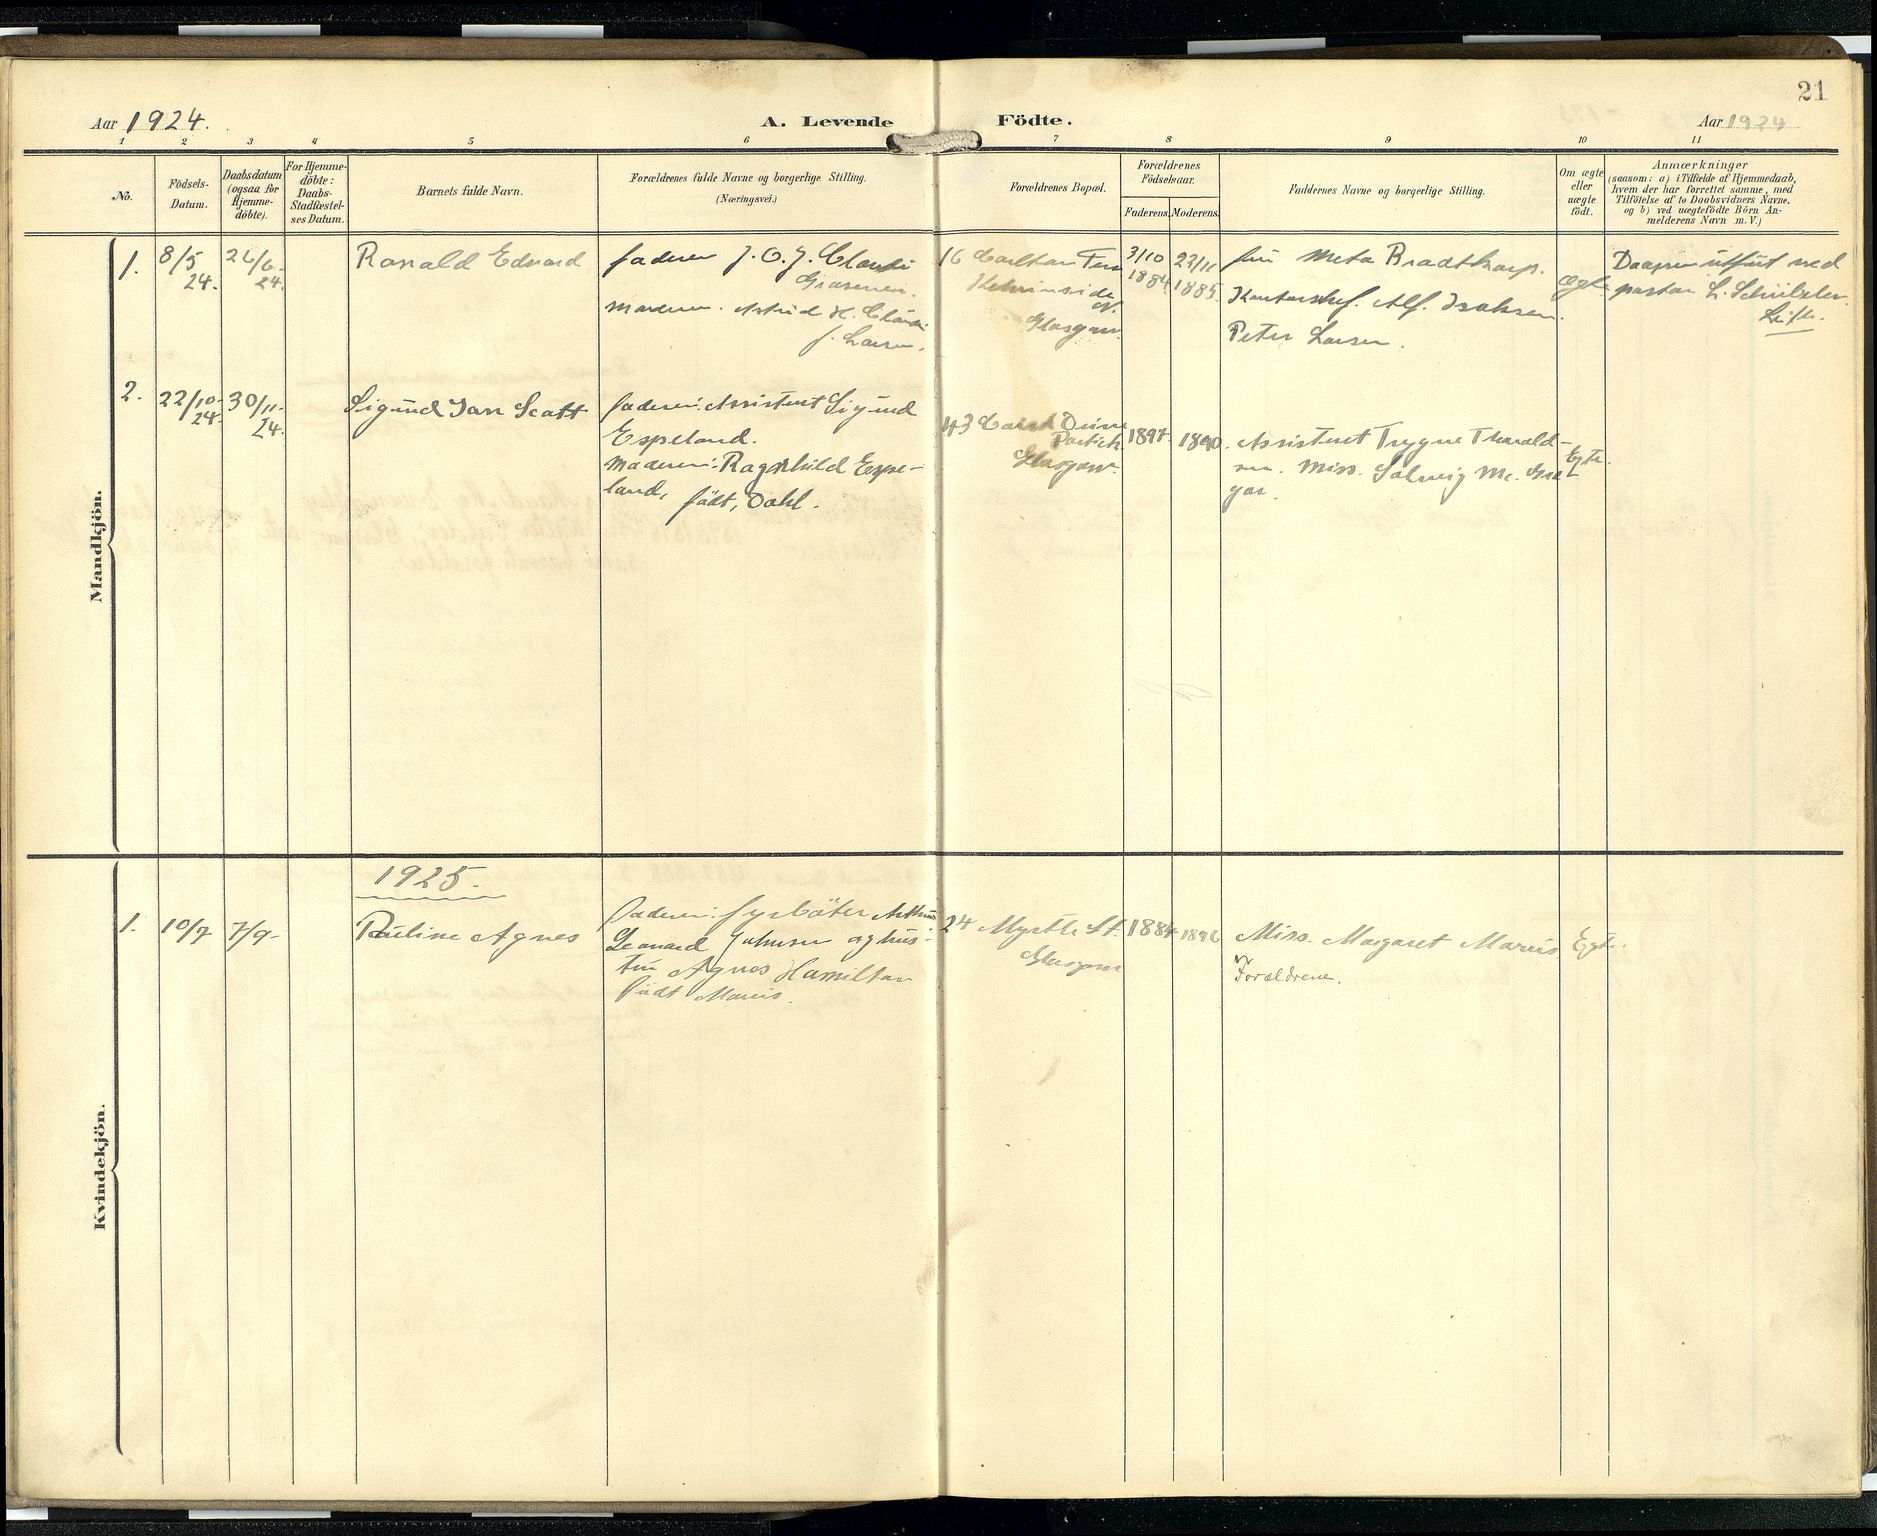 21
Aar 1924.
A. Levende Födte.
Aar 1924
1 2 3 4 5 6 7 8 9 10 11
No.
Födsels-
Datum.
Daabsdatum
(ogsaa for
Hjemme-
döbte).
For Hjemme-
döbte:
Daabs-
Stadfæstel-
ses Datum.
Barnets fulde Navn.
Forældrenes fulde Navne og borgerlige Stilling.
(Næringsvei.)
Forældrenes Bopæl.
Forældrenes
Födselsaar.
Faderens. Moderens.
Faddernes Navne og borgerlige Stilling.
Om ægte
eller
uægte
födt.
Anmærkninger
(saasom: a) i Tilfælde af Hjemmedaab,
hvem der har forrettet samme, med
Tilföielse af to Daabsvidners Navne.
og b) ved uægtefödte Börn An-
melderens Navn m. V.)
Mandkjön.
1.
8/5
24.
26/6-
24.
Ronald Edvard
faderen J. O. J. Claudi
Moderen. Astrid H. Claudi
f. Larsen.
16 Carlton Terr
Kelvinside
Glasgow
3/10
1884
23/11
1885.
fru Meta Bradthorp.
Kontorchef. Alf. Isaksen.
Peter Larsen.
ægte
Daapen utfört ved
pastor L. Schübeler.
Leith.
2.
22/10-
24.
30/11-
24.
Sigurd Ian Scott
faderen: Assistent Sigurd
Espeland.
Moderen: Ragnhild Espe-
land, födt, Dahl.
43 Caird Drive
Partick
Glasgow.
1897.
1890.
Assistent Trygve Thorald-
sen. Miss. Solveig Mc. Gre
gor.
Egte.
Kvindekjön.
1925.
1.
10/7
7/9-
Pauline Agnes
faderen: fyrböter Arthur
Leonard Johnsen og hus-
tru Agnes Hamilton
födt Marús.
24 Myrtle St.
Glasgow
1884
1896
Miss. Margaret Marús
Forældrene.
Egte.